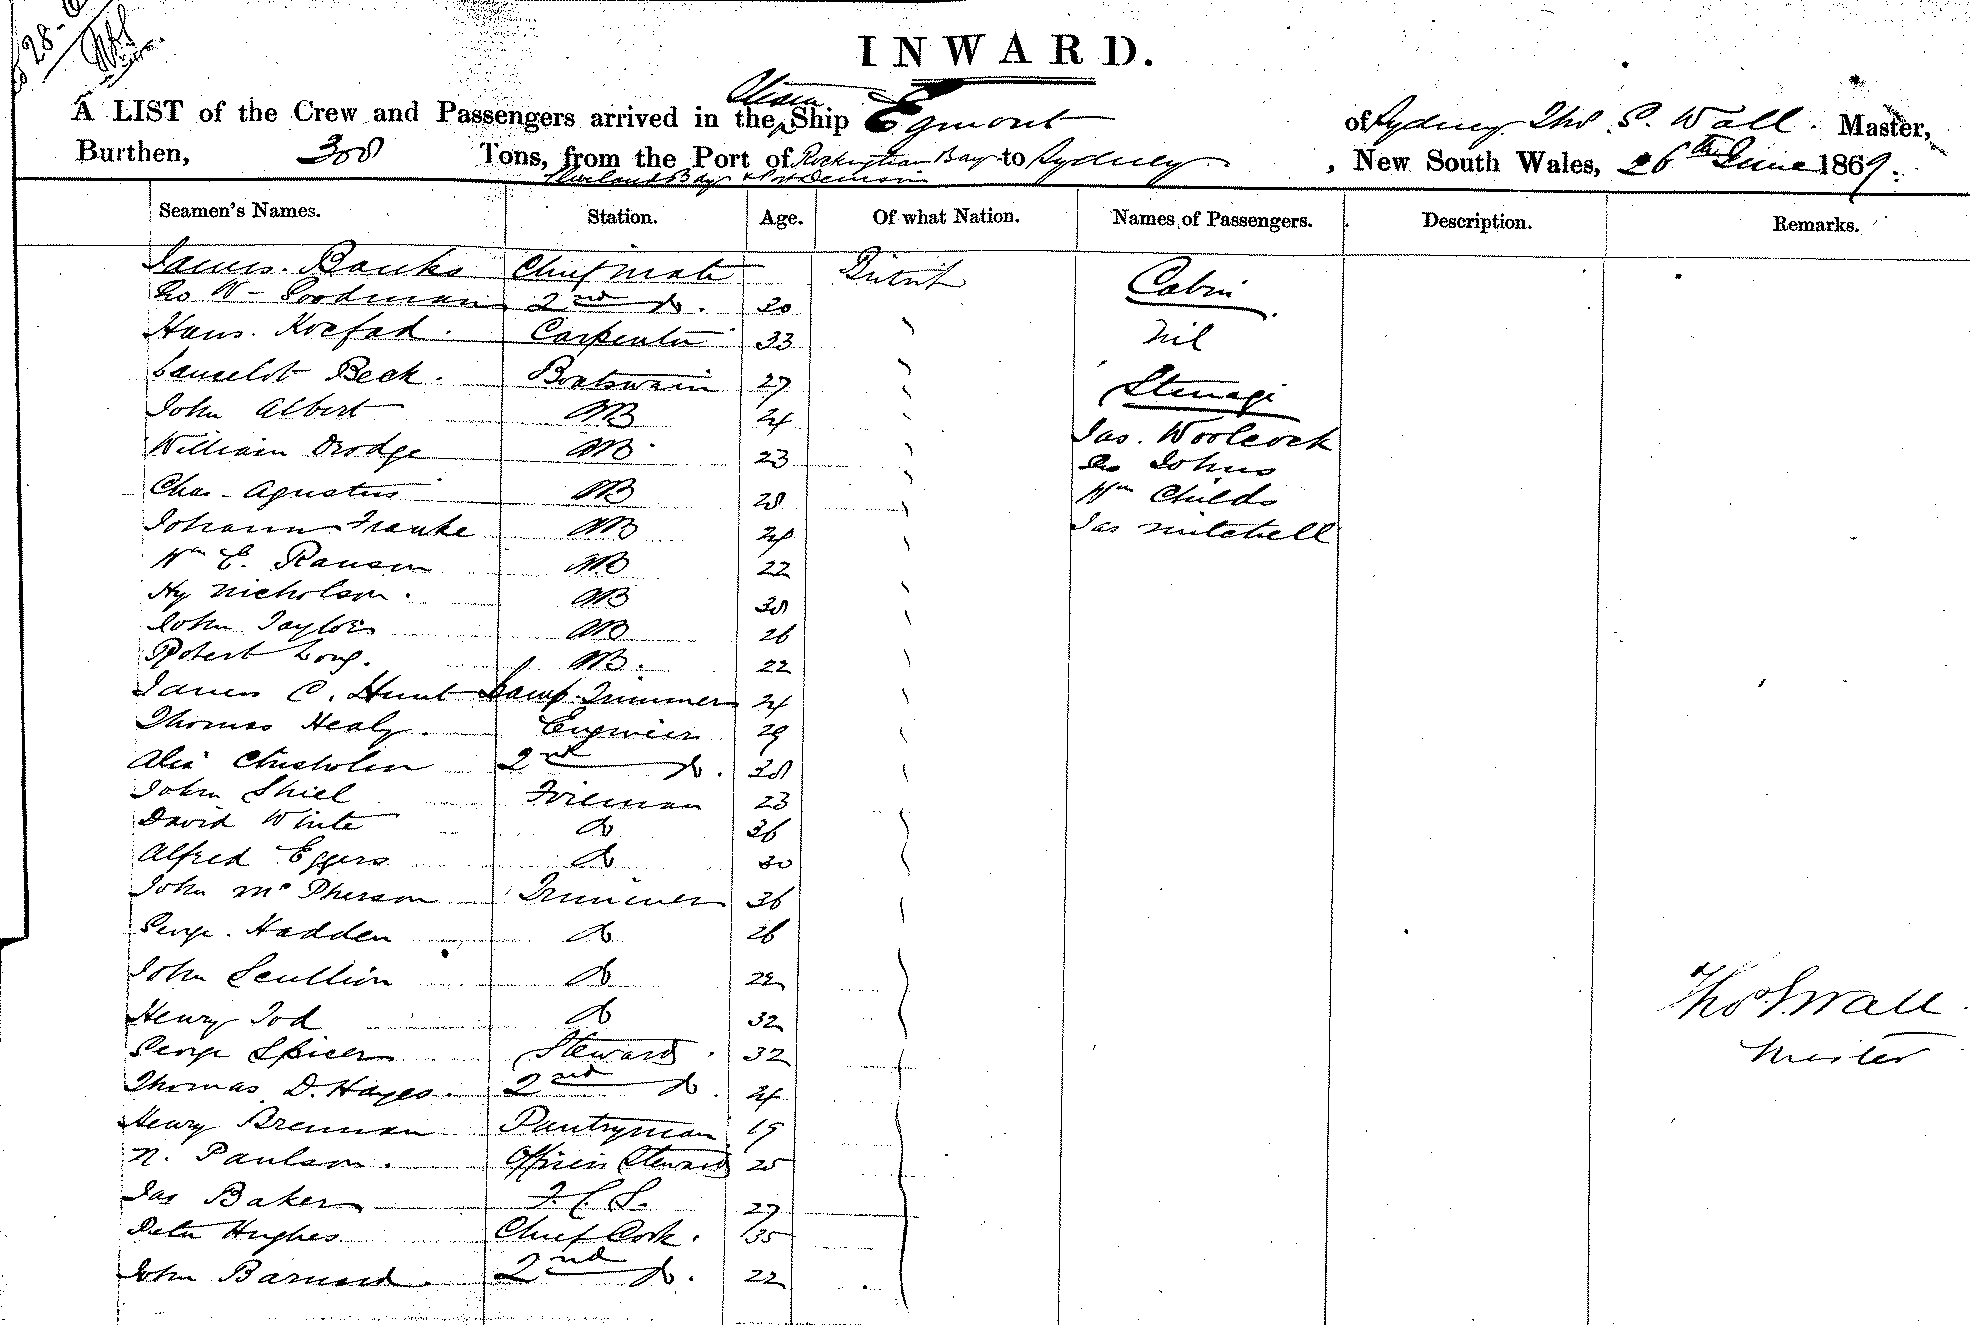 INWARD.
A LIST of the Crew and Passengers arrived in the Steam Ship Egmont of Sydney Thos. S. Wall. Master,
Burthen, 300 Tons, from the Port of Rockingham Bay to Sydney, New South Wales, 26th June 1869.
Cleveland Bay & Pt Denison
Seamen's Names. Station. Age. Of what Nation. Names of Passengers. Description. Remarks.
James Banks Chief mate British Cabin
W Goodman 2nd Do. 30
Hans Koefad. Carpenter 33 Nil
Lancelot Beck. Boatswain 27 Steerage
John Albert AB 24
William Drodge AB 23 Jas. Woolcock
Chas. Agustus AB 28 Johns
Johann Franke AB 24 Wm Childs
Wm E. Ranson AB 22 Jas Mitchell
Hy Nicholson. AB 30
John Taylor AB 26
Robert Long. AB. 22
James C. Hunt Lamp Trimmer 24
Thomas Healy. Engineer 29
Alex Chisholm 2nd Do. 30
John Shiel Fireman 23
David White Do 36
Alfred Eggers Do 30
John McPherson Trimmer 36
George Hadden Do 26
John Scullion Do 22
Henry Tod Do 32
George Spicer Steward. 32
Thomas D. Hayes. 2nd Do. 24
Henry Brennan Pantryman 19
N. Paulson. Officers Steward 25
Jas Baker F.C.S. 27
Peter Hughes Chief Cook. 35
John Barnard. 2nd Do. 22
Thos S. Wall
Master